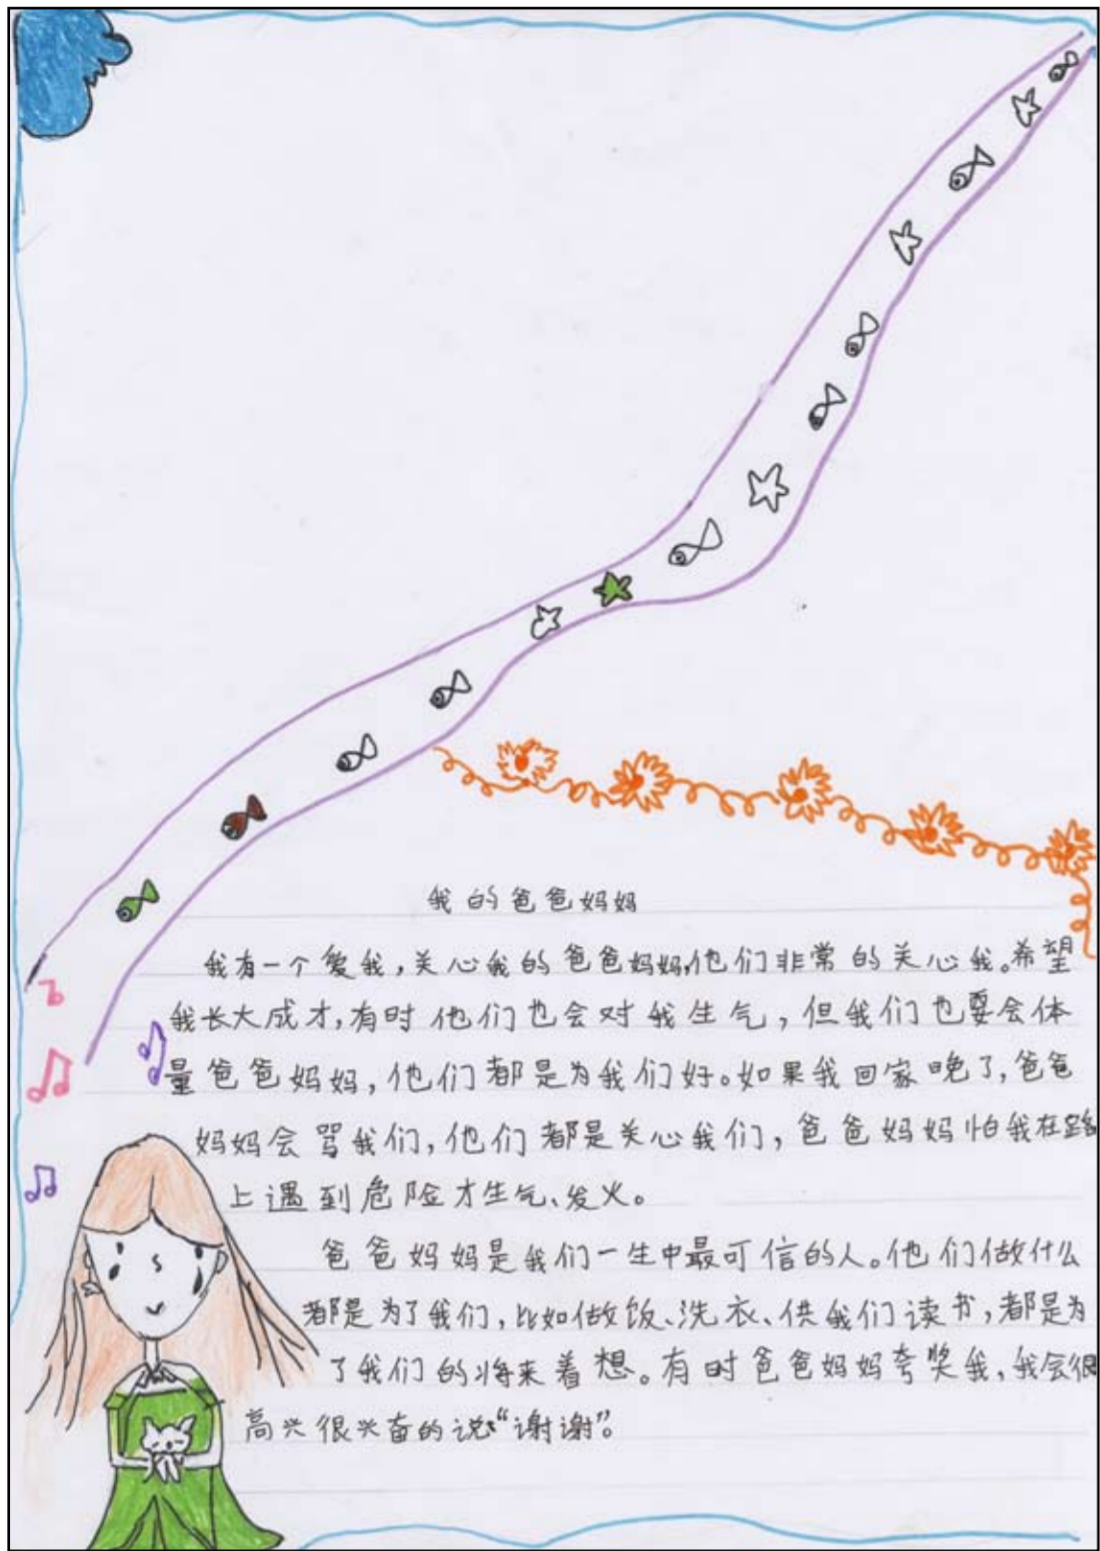 我的爸爸妈妈
我有一个爱我,关心我的爸爸妈妈,他们非常的关心我。希望
我长大成才,有时他们也会对我生气,但我们也要会体
量爸爸妈妈,他们都是为我们好。如果我回家晚了,爸爸
妈妈会骂我们,他们都是关心我们,爸爸妈妈怕我在路
上遇到危险才生气、发火。
爸爸妈妈是我们一生中最可信的人。他们做什么
都是为了我们,比如做饭、洗衣、供我们读书,都是为
了我们的将来着想。有时爸爸妈妈夸奖我,我会很
高兴很兴奋的说“谢谢”。